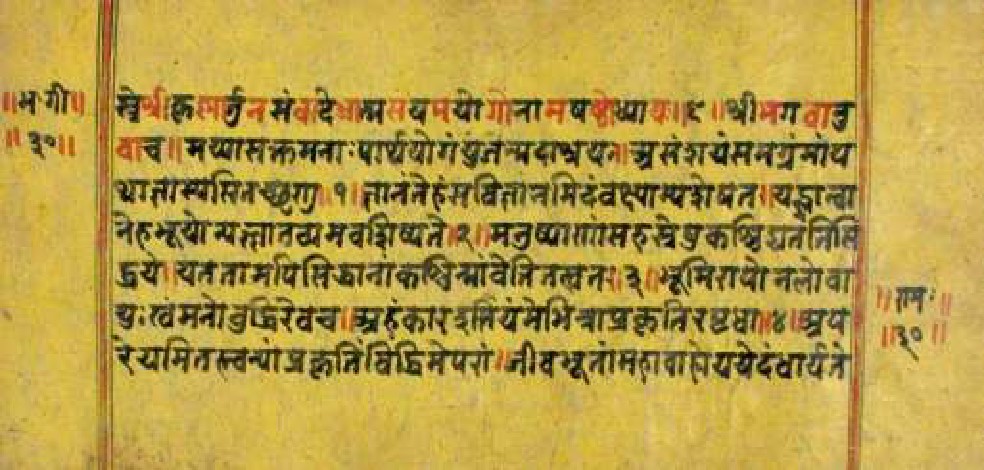 ॥भ॰गी॥
॥३०॥
स्त्रेश्रीकृष्णार्जुनसंवादेध्यात्मसंयमयोगोनामषष्ठोध्यायः॥६॥श्रीभगवानु
वाच॥मय्यासक्तमनाःपार्थयोगंयुंजन्मदाश्रयः॥असंशयंसमग्रंमांय
थाज्ञास्यसितच्छृणु॥१॥ज्ञानंतेहंसविज्ञानमिदंवक्ष्याम्यशेषतः॥यज्ज्ञात्वा
नेहभूयोन्यज्ज्ञातव्यमवशिष्यते॥२॥मनुष्याणांसहस्रेषुकश्चिद्यततिसि
द्धये॥यततामपिसिद्धानांकश्चिन्मांवेत्तितत्वतः॥३॥भूमिरापोनलोवा
युःखंमनोबुद्धिरेवच॥अहंकारइतीयंमेभिन्नाप्रकृतिरष्टधा॥४॥अप
रेयमितस्त्वन्यांप्रकृतिंविद्धिमेपरां॥जीवभूतांमहाबाहोययेदंधार्यते
॥रामः॥
॥३०॥